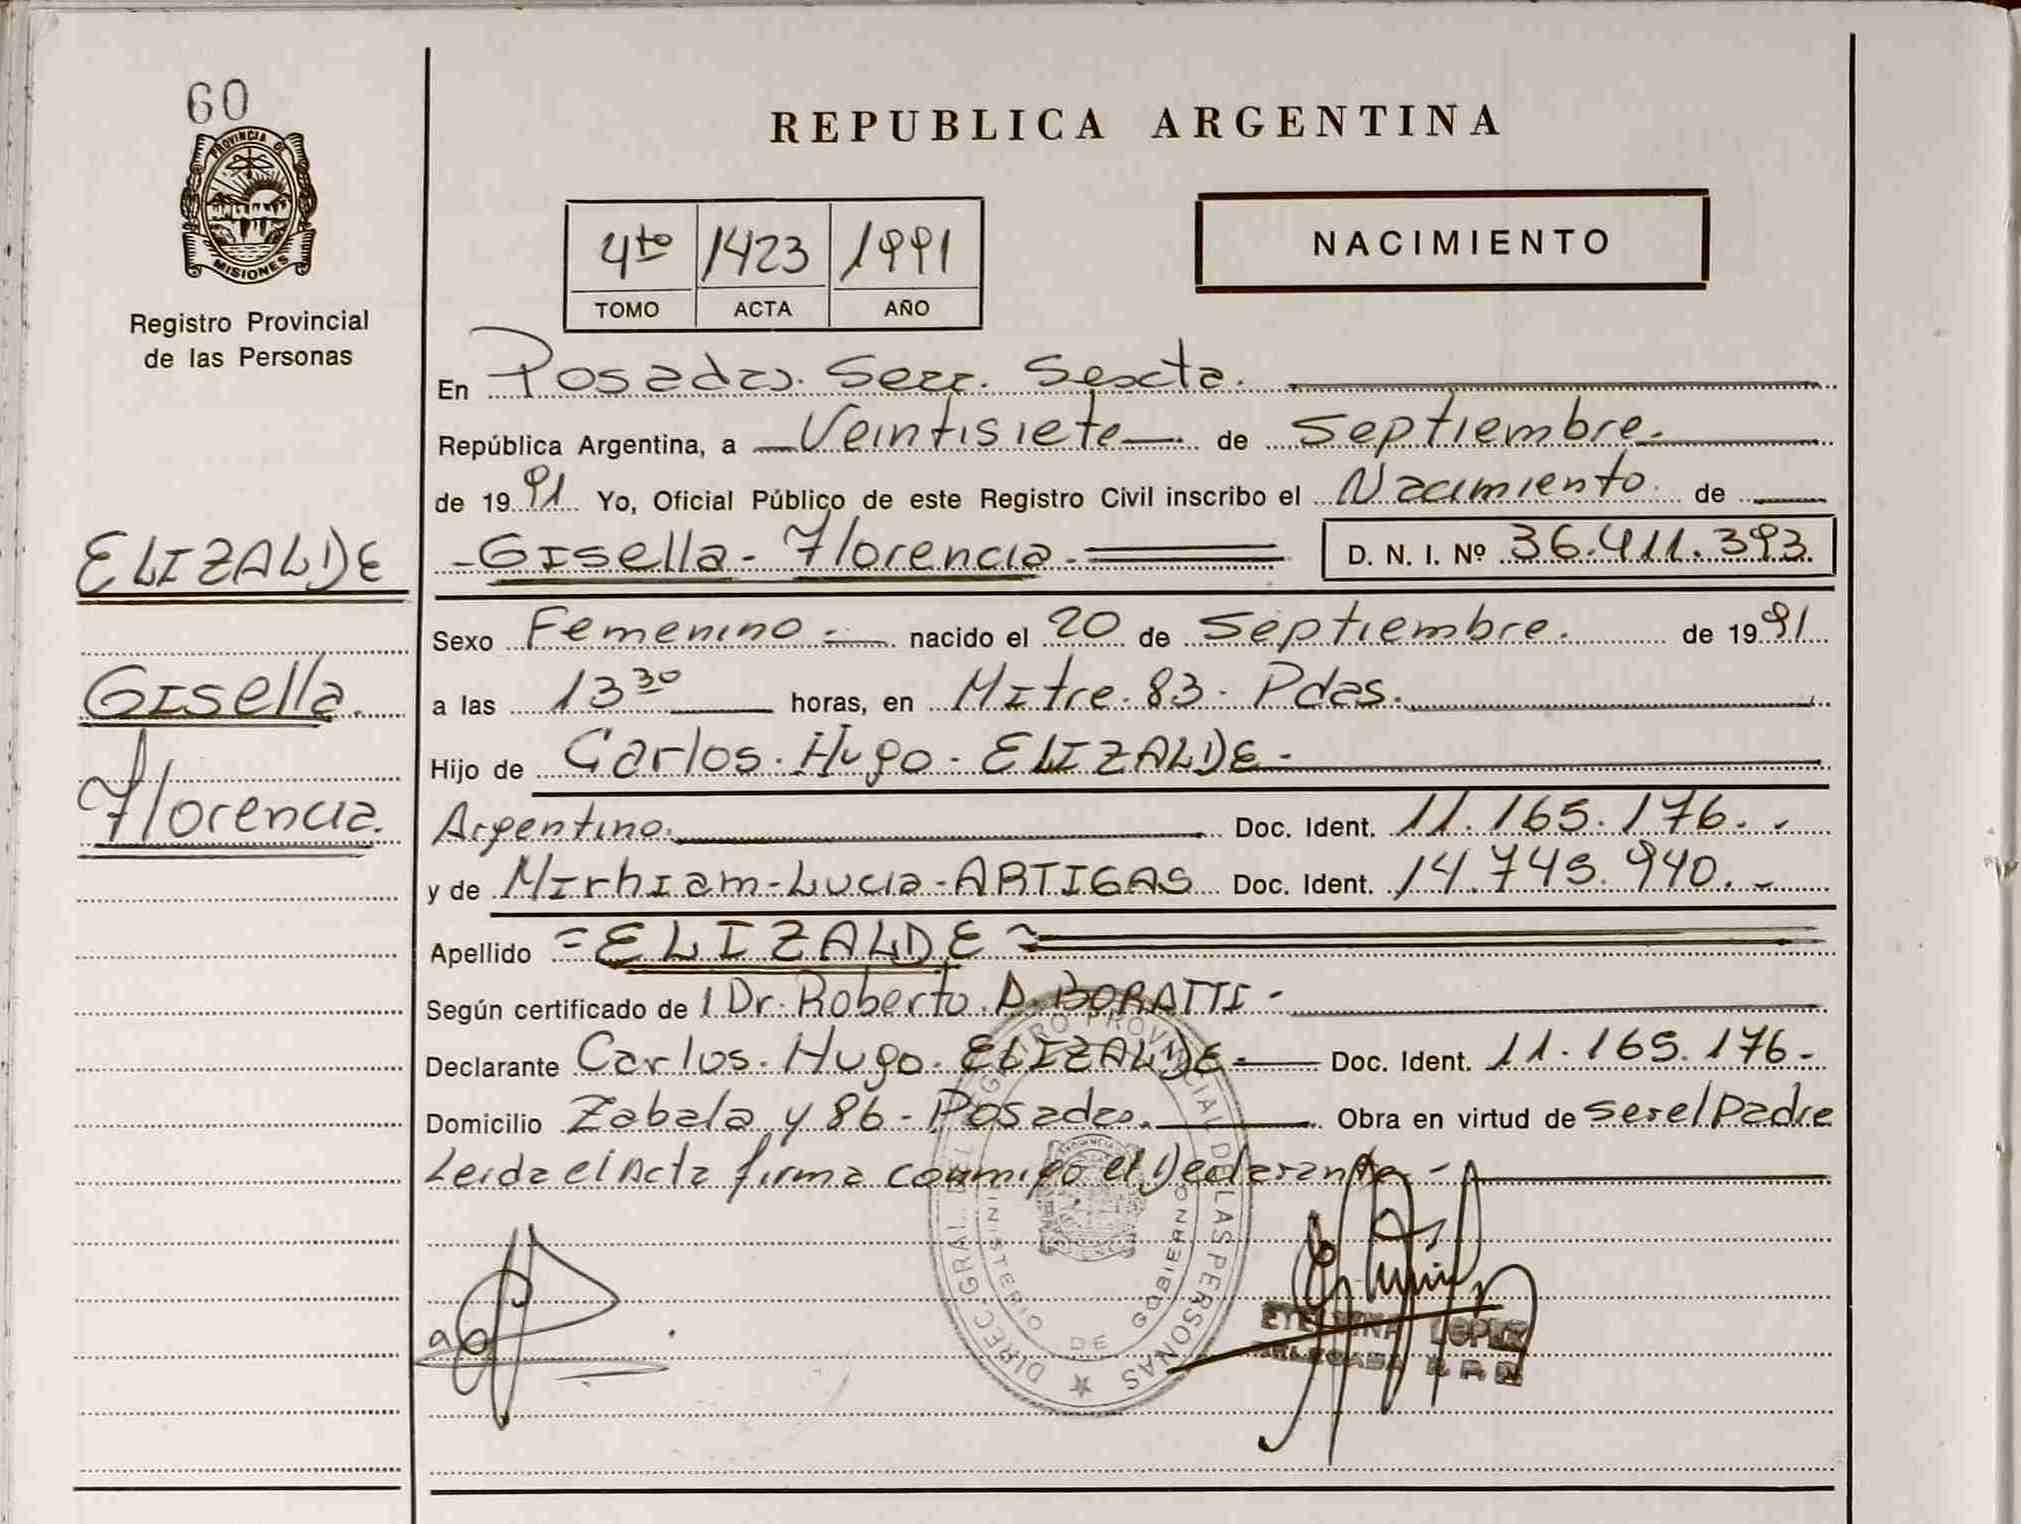 60
PROVINCIA DE
MISIONES
Registro Provincial
de las Personas
ELIZALDE
Gisella
Florencia.
REPUBLICA ARGENTINA
4to 1423 1991
TOMO ACTA AÑO
NACIMIENTO
En Posadas. Secc. Sexta.
República Argentina, a Veintisiete de Septiembre.
de 1991 Yo, Oficial Público de este Registro Civil inscribo el Nacimiento de
Gisella - Florencia - D. N. I. Nº 36.411.393.
Sexo Femenino nacido el 20 de Septiembre. de 1991
a las 13 30 horas, en Mitre. 83. Pdas.
Hijo de Carlos. Hugo. ELIZALDE -
Argentino. Doc. Ident. 11.165.176.
y de Mirhiam - Lucia - ARTIGAS Doc. Ident. 14.745.940.
Apellido = ELIZALDE =
Según certificado de 1 Dr. Roberto. D. BORATTI -
Declarante Carlos. Hugo. ELIZALDE - Doc. Ident. 11.165.176 -
Domicilio Zabala y 86 - Posadas. Obra en virtud de ser el padre
Leida el Acta firma conmigo el Declarante -
DIREC. GRAL. DEL REGISTRO PROVINCIAL DE LAS PERSONAS
MINISTERIO DE GOBIERNO
LOPEZ